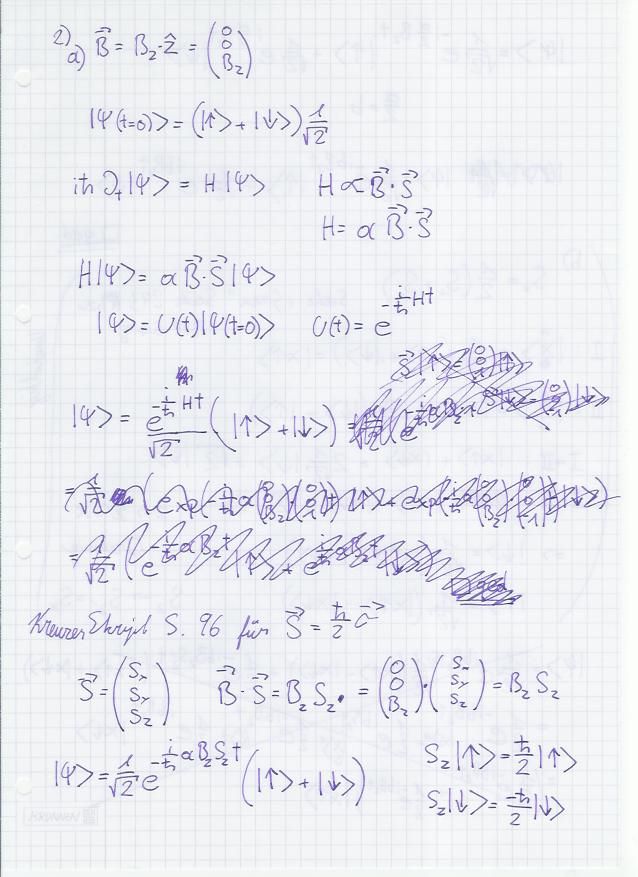 2) a) $\vec{B} = B_z \cdot \hat{z} = \begin{pmatrix} 0 \\ 0 \\ B_z \end{pmatrix}$
$|\Psi(t=0)\rangle = (|\uparrow\rangle + |\downarrow\rangle) \frac{1}{\sqrt{2}}$
$i\hbar \partial_t |\Psi\rangle = H|\Psi\rangle \quad H \propto \vec{B} \cdot \vec{S}$
$H = \alpha \vec{B} \cdot \vec{S}$
$H|\Psi\rangle = \alpha \vec{B} \cdot \vec{S} |\Psi\rangle$
$|\Psi\rangle = U(t)|\Psi(t=0)\rangle \quad U(t) = e^{-\frac{i}{\hbar}Ht}$
$|\Psi\rangle = \frac{e^{-\frac{i}{\hbar}Ht}}{\sqrt{2}} (|\uparrow\rangle + |\downarrow\rangle) =$
S. 96 für $\vec{S} = \frac{\hbar}{2} \vec{\sigma}$
$\vec{S} = \begin{pmatrix} S_x \\ S_y \\ S_z \end{pmatrix} \quad \vec{B} \cdot \vec{S} = B_z S_z = \begin{pmatrix} 0 \\ 0 \\ B_z \end{pmatrix} \cdot \begin{pmatrix} S_x \\ S_y \\ S_z \end{pmatrix} = B_z S_z$
$|\Psi\rangle = \frac{1}{\sqrt{2}} e^{-\frac{i}{\hbar} \alpha B_z S_z t} (|\uparrow\rangle + |\downarrow\rangle) \quad S_z |\uparrow\rangle = \frac{\hbar}{2} |\uparrow\rangle$
$S_z |\downarrow\rangle = \frac{-\hbar}{2} |\downarrow\rangle$